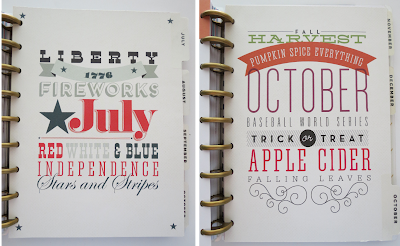 LIBERTY
1776
FIREWORKS
July
RED WHITE & BLUE
INDEPENDENCE
Stars and Stripes
JULY
AUGUST
SEPTEMBER
OCTOBER
FALL
HARVEST
PUMPKIN SPICE EVERYTHING
OCTOBER
BASEBALL WORLD SERIES
TRICK or TREAT
APPLE CIDER
FALLING LEAVES
NOVEMBER
DECEMBER
OCTOBER